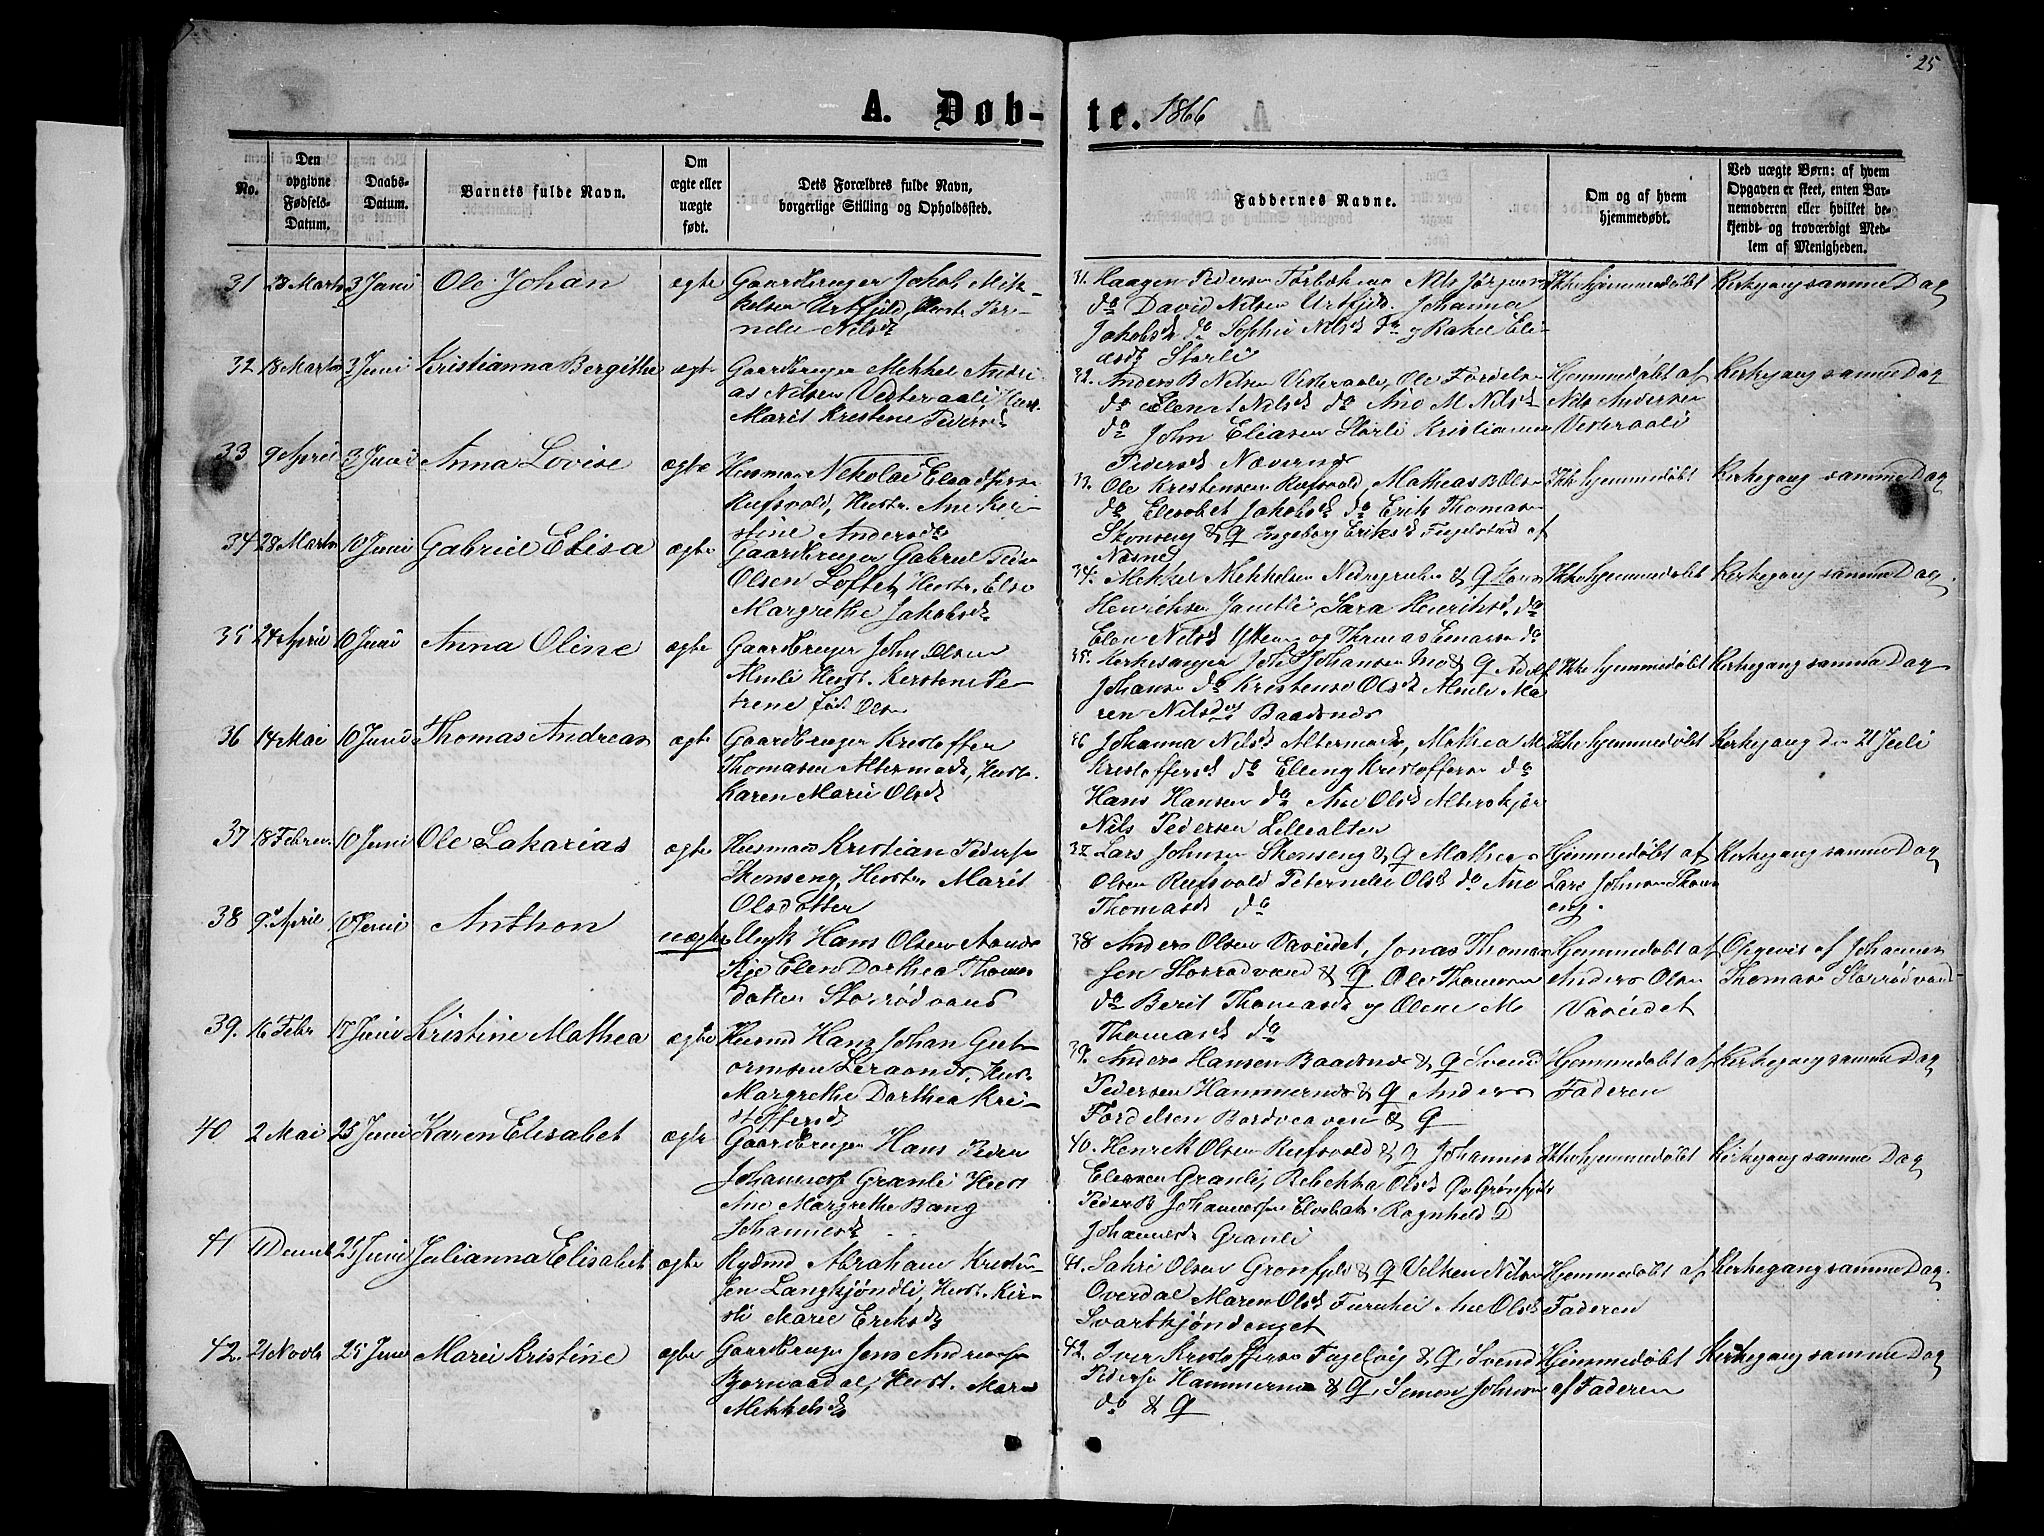 25
A. Døb- te. 1866
No.
Den opgivne Fødsels-Datum.
Daabs-Datum.
Barnets fulde Navn.
Om ægte eller uægte født.
Dets Forældres fulde Navn, borgerlige Stilling og Opholdssted.
Faddernes Navne.
Om og af hvem hjemmedøbt.
Ved uægte Børn: af hvem Opgaven er skeet, enten Barnemoderen eller hvilket bekjendt og troværdigt Medlem af Menigheden.
31 23 Marts 3 Juni Ole Johan ægte Gaardbruger Jakob Mik-
kelsen Urtfjeld, Hust.
Nilsd
31. Haagen Pedersen Nils Jørgensen
do David Nilsen Urtfjeld, Johanna
Jakobsd do Sophie Nilsd do og Rakel Eli-
asd Storli
Ikke hjemmedøbt Kirkegang samme Dag
32 18 Marts 3 Juni Kristianna Bergithe ægte Gaardbruger Mekkel Andre-
as Nilsen Vesteraali Hust.
Marit Kristine Pedersd
32. Anders B Nilsen Vesteraali, Ole Fordelsen
do Elen A Nilsd do Ane M Nilsd
do John Eliasen Storli Kristianna
Pedersd Nævernes
Hjemmedøbt af
Nils Andersen
Vesteraali
Kirkegang samme Dag
33 9 April 3 Juni Anna Lovise ægte Husmand Nikolai
Rufsvold, Hustr. Ane Kri-
stine Andersd
33. Ole Kristensen Rufsvold, Mathias B Olsen
do Elisabet Jakobsd do Erik Thomasen
Skonseng & Q Ingeborg Eriksd af
Næsne
Ikke hjemmedøbt Kirkegang samme Dag
34 28 Marts 10 Juni Gabriel Elisa ægte Gaardbruger Gabriel Peder
Olsen Loftet, Hustr. Else
Margrethe Jakobsd
34. Mekkel Mekkelsen & Q Hans
Henriksen Jamtli, Sara Henriksd do
Elen Nilsd og Thomas do
Ikke hjemmedøbt Kirkegang samme Dag
35 24 April 10 Juni Anna Oline ægte Gaardbruger John Olsen
Hust. Kirstine Pe-
trene født Olsen
35. Kirkesanger Johs Johansen Mo & Q Adolf
Johansen do Kristense Olsd Ma-
ren Nilsd Baadsnes
Ikke hjemmedøbt Kirkegang samme Dag
36 14 Mai 10 Juni Thomas Andreas ægte Gaardbruger Kristoffer
Thomasen Altermark, Hust.
Karen Marie Olsd
36 Johanna Nilsd Altermark, Mathea M
Kristoffersd do Elling Kristoffersen do
Hans Hansen do Ane Olsd
Nils Pedersen Lillealteren
Ikke hjemmedøbt Kirkegang den 21 Juli
37 18 Februar 10 Juni Ole Zakarias ægte Husmand Kristian Pedersen
Skonseng, Hustr. Marit
Olsdatter
37 Lars Johnsen Skonseng & Q Mathias
Olsen Rufsvold Peternelle Olsd do Ane
Thomasd do
Hjemmedøbt af
Lars Johnsen Skons-
eng.
Kirkegang samme Dag
38 9 April 10 Juni Anthon uægte Ungk Hans Olsen
Pige Elen Dorthea Thomas
datter Storrødvand
38 Anders Olsen Vaveidet, Jonas Thoma-
sen Storrødvand & Q Ole Thomasen
do Berit Thomasd og Olene M.
Thomasd do
Hjemmedøbt af
Anders Olsen
Vaveidet
Opgivet af Johannes
Thomasen Storrødvand
39. 16 Febr 17 Juni Kristine Mathea ægte Husmd Hans Johan Gut-
ormsen Leraand, Hust.
Margrethe Dorthea Kri-
stoffersd
39. Anders Hansen Baadsnes & Q Svend
Pedersen Hammernes & Q Anders
Fordelsen & Q
Hjemmedøbt af
Faderen
Kirkegang samme Dag
40 2 Mai 25 Juni Karen Elisabet ægte Gaardbruger Hans Peder
Johannes Granli Hust
Ane Margrethe Bang
Johannesd
40. Henrik Olsen Rufsvold & Q Johannes
Eliassen Granli, Rebekka Olsd Grønfjeld
Peder B Johannessen Ragnhild D
Johannesd Granli
Ikke hjemmedøbt Kirkegang samme Dag
41 11 Decmb 25 Juni Julianna Elisabet ægte Rydmd Abraham Kristen-
sen Langkjøndli, Hust. Kir-
sti Marie Eriksd
41. Olsen Grønfjeld & Q Nilsen
Overdal Maren Olsd Furuhei Ane Olsd
Svartkjøndenget
Hjemmedøbt af
Faderen
Kirkegang samme Dag
42. 21 Novbr 25 Juni Marie Kristine ægte Gaardbruger Jens Andreassen
Bjørnaadal, Hust. Maren
Mekkelsd
42. Iver Kristoffersen Fagelvig & Q, Svend
Pedersen Hammernes & Q, Simon Johnsen
do & Q
Hjemmedøbt
af Faderen
Kirkegang samme Dag